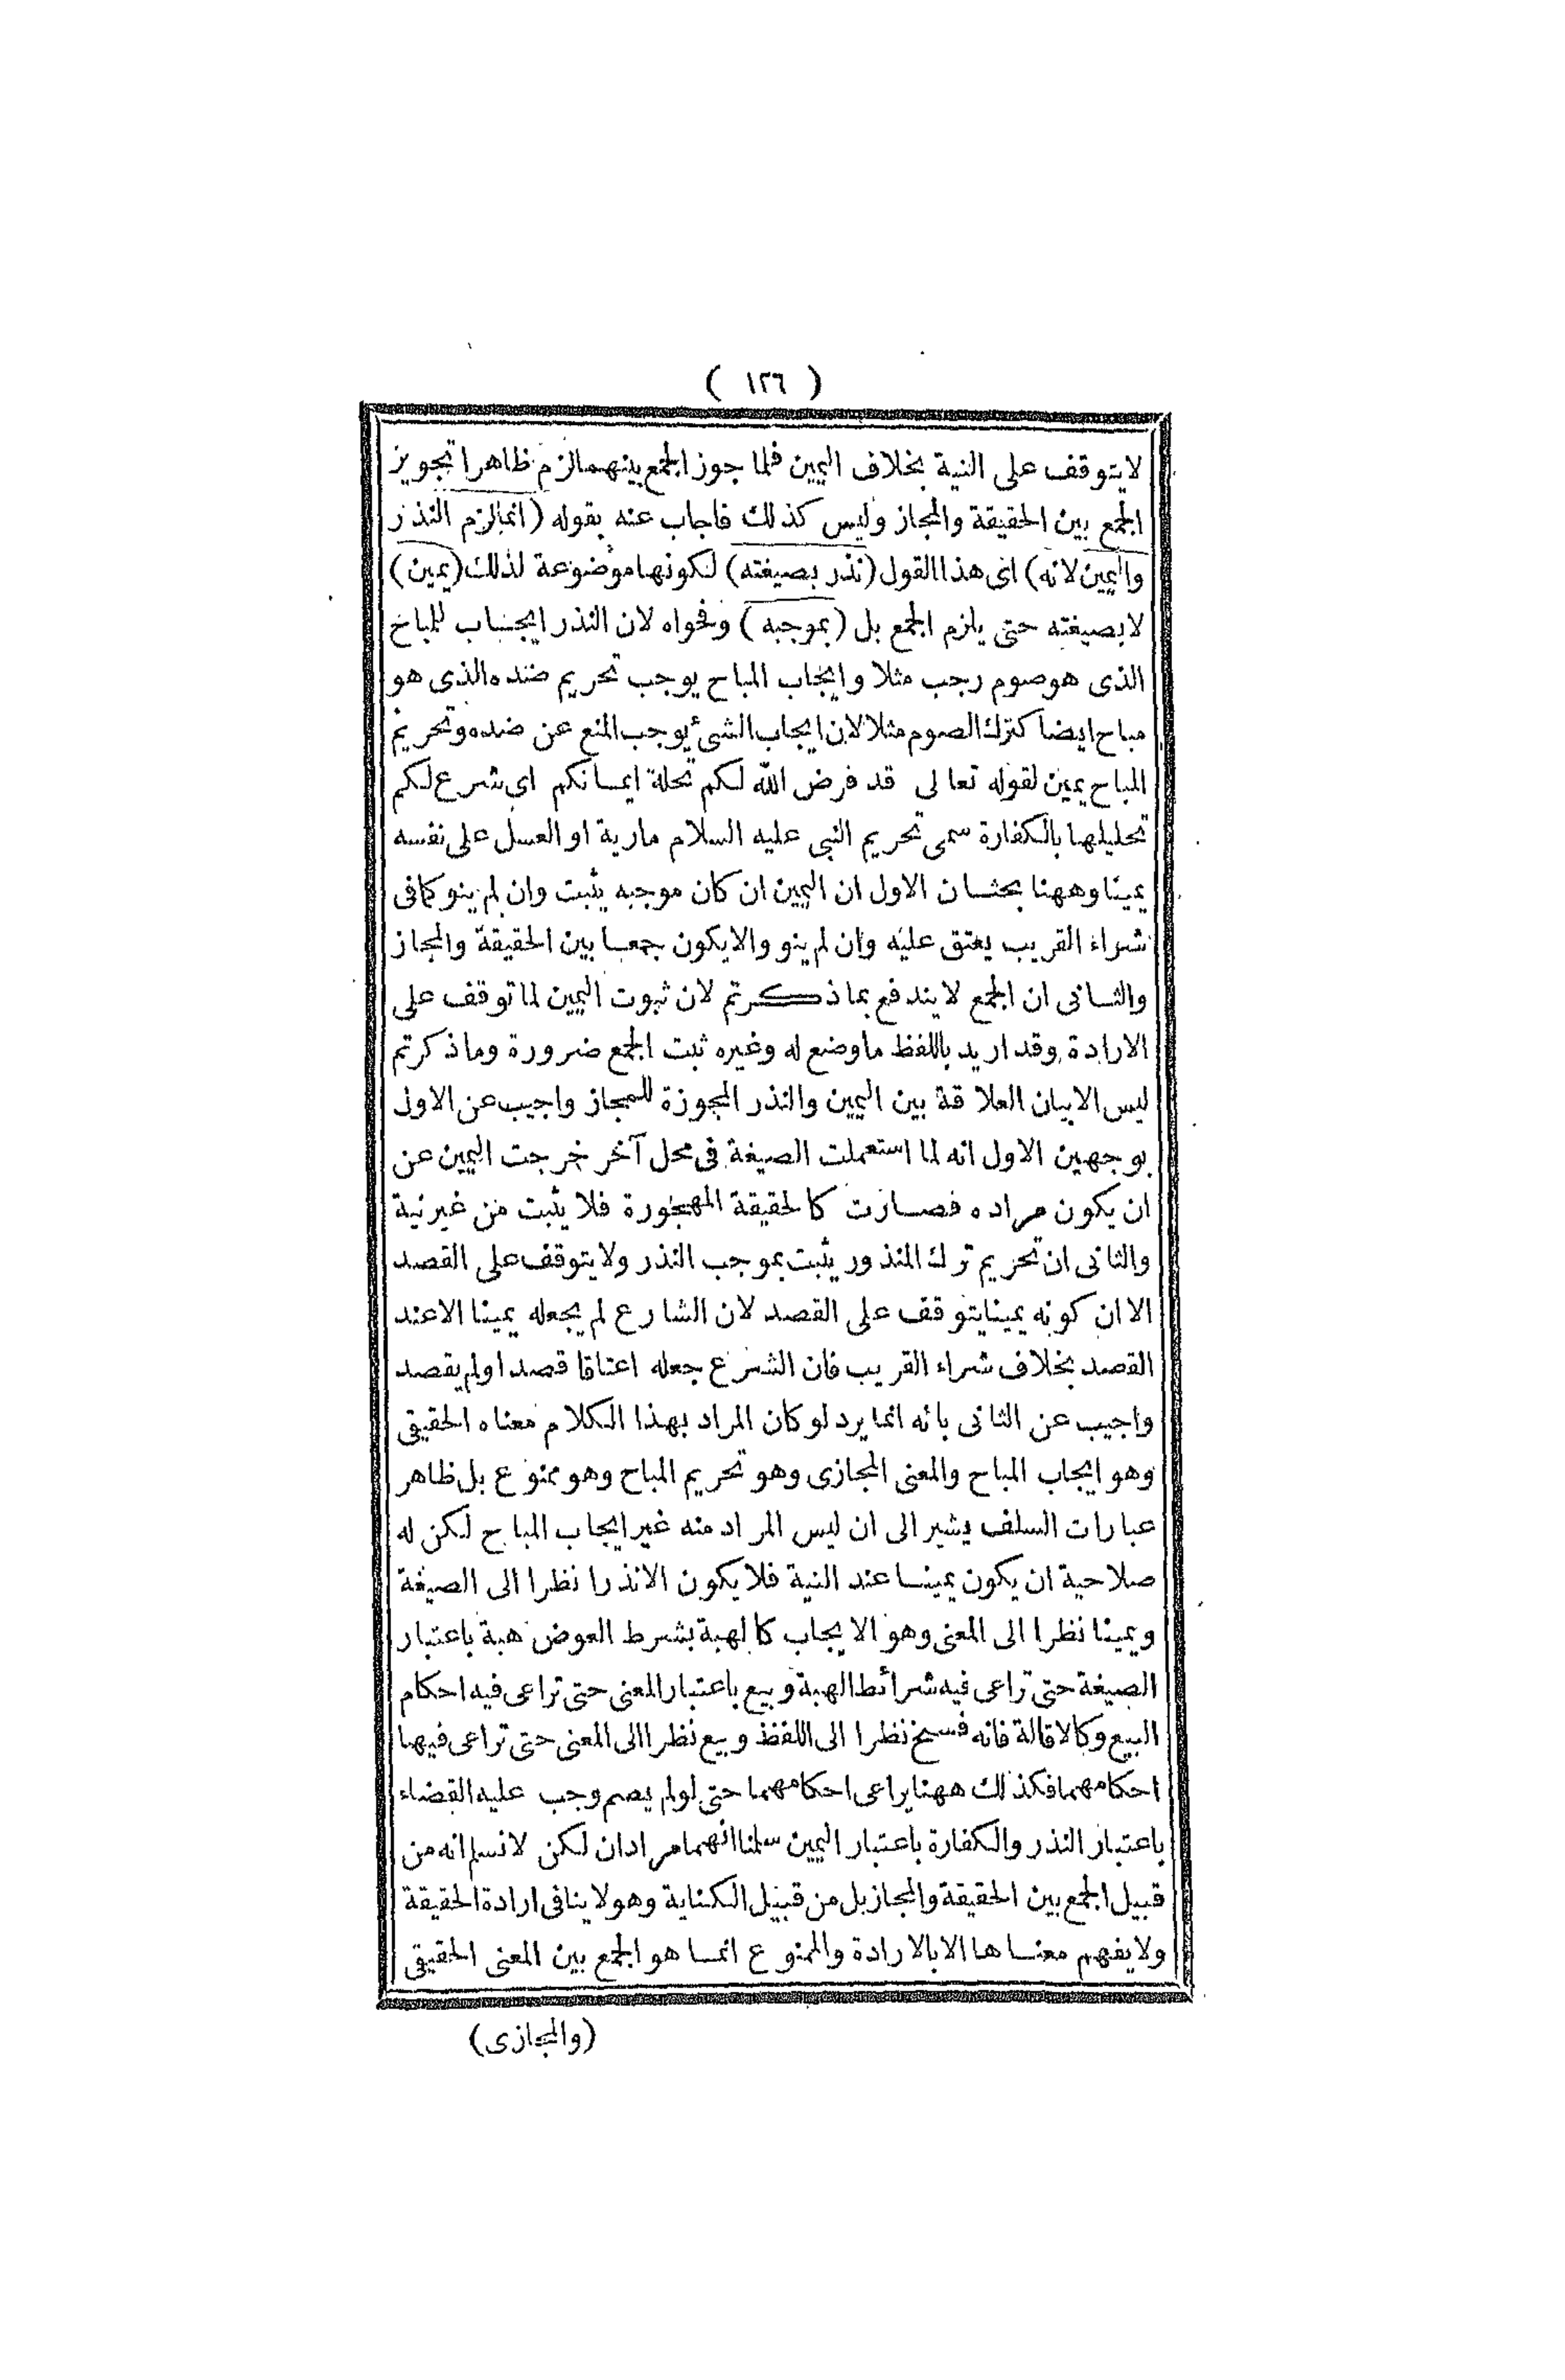 ( ١٢٦ )
لايتوقف على النية بخلاف اليمين فلما جوز الجمع بينهما لزم ظاهرا تجويز
الجمع بين الحقيقة والمجاز وليس كذلك فاجاب عنه بقوله (انما لزم النذر
واليمين لانه) اى هذا القول (نذر بصيغته) لكونها موضوعة لذلك (يمين)
لابصيغته حتى يلزم الجمع بل (بموجبه) وفحواه لان النذر ايجاب للمباح
الذى هو صوم رجب مثلا وايجاب المباح يوجب تحريم ضده الذى هو
مباح ايضا كترك الصوم مثلا لان ايجاب الشئ يوجب المنع عن ضده وتحريم
المباح يمين لقوله تعالى قد فرض الله لكم تحلة ايمانكم اى شرع لكم
تحليلها بالكفارة سمى تحريم النبى عليه السلام مارية او العسل على نفسه
يمينا وههنا بحثان الاول ان اليمين ان كان موجبه يثبت وان لم ينو كمافى
شراء القريب يعتق عليه وان لم ينو والايكون جمعا بين الحقيقة والمجاز
والثانى ان الجمع لايندفع بماذكرتم لان ثبوت اليمين لما توقف على
الارادة وقد اريد باللفظ ماوضع له وغيره ثبت الجمع ضرورة وماذكرتم
ليس الابيان العلاقة بين اليمين والنذر المجوزة للمجاز واجيب عن الاول
بوجهين الاول انه لما استعملت الصيغة فى محل آخر خرجت اليمين عن
ان يكون مراده فصارت كالحقيقة المهجورة فلا يثبت من غير نية
والثانى ان تحريم ترك المنذور يثبت بموجب النذر ولايتوقف على القصد
الا ان كونه يمينا يتوقف على القصد لان الشارع لم يجعله يمينا الاعند
القصد بخلاف شراء القريب فان الشرع جعله اعتاقا قصد اولم يقصد
واجيب عن الثانى بانه انما يرد لوكان المراد بهذا الكلام معناه الحقيقى
وهو ايجاب المباح والمعنى المجازى وهو تحريم المباح وهو ممنوع بل ظاهر
عبارات السلف يشير الى ان ليس المراد منه غير ايجاب المباح لكن له
صلاحية ان يكون يمينا عند النية فلا يكون الانذرا نظرا الى الصيغة
ويمينا نظرا الى المعنى وهو الايجاب كالهبة بشرط العوض هبة باعتبار
الصيغة حتى تراعى فيه شرائط الهبة وبيع باعتبار المعنى حتى تراعى فيه احكام
البيع وكالاقالة فانه فسخ نظرا الى اللفظ وبيع نظرا الى المعنى حتى تراعى فيها
احكامهما فكذلك ههنا يراعى احكامهما حتى لولم يصم وجب عليه القضاء
باعتبار النذر والكفارة باعتبار اليمين سلمنا انهما مرادان لكن لانسلم انه من
قبيل الجمع بين الحقيقة والمجاز بل من قبيل الكناية وهو لاينافى ارادة الحقيقة
ولايفهم معناها الابالارادة والممنوع انما هو الجمع بين المعنى الحقيقى
(والمجازى)